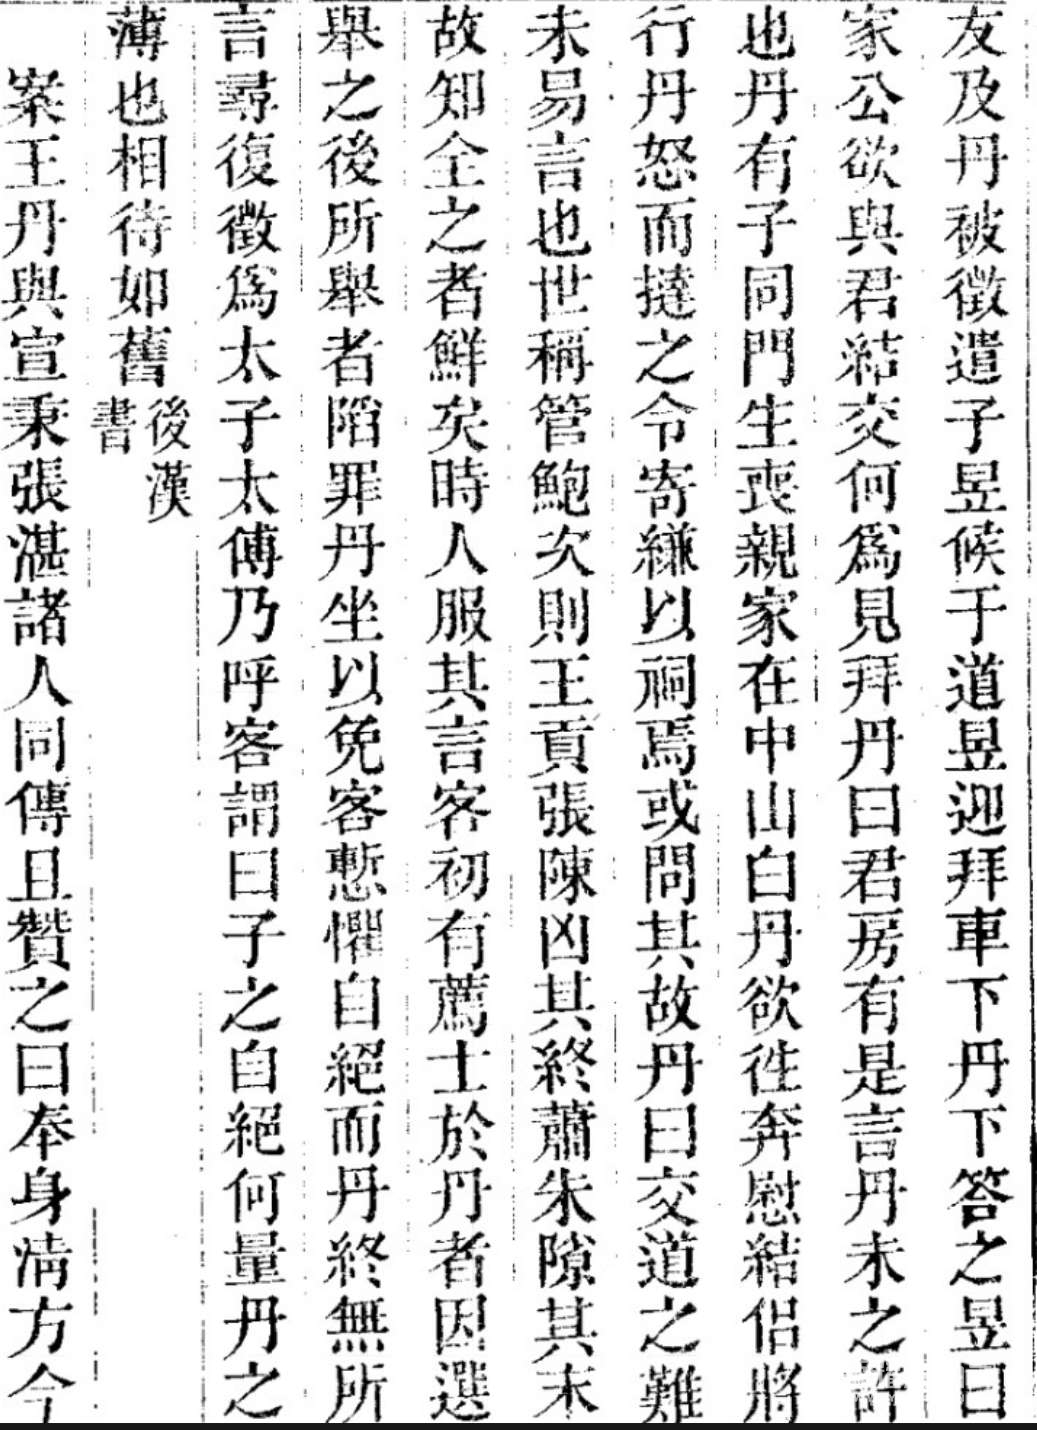 友及丹被徵遣子昱候于道昱迎拜車下丹下答之昱曰
家公欲與君結交何爲見拜丹曰君房有是言丹未之許
也丹有子同門生喪親家在中山白丹欲徃奔慰結侶將
行丹怒而撻之令寄縑以祠焉或問其故丹曰交道之難
未易言也世稱管鮑次則王貢張陳凶其終蕭朱隙其末
故知全之者鮮矣時人服其言客初有薦士於丹者因選
舉之後所舉者陷罪丹坐以免客慙懼自絕而丹終無所
言尋復徵爲太子太傅乃呼客謂曰子之自絕何量丹之
薄也相待如舊後漢書
案王丹與宣秉張湛諸人同傳且贊之曰奉身清方今